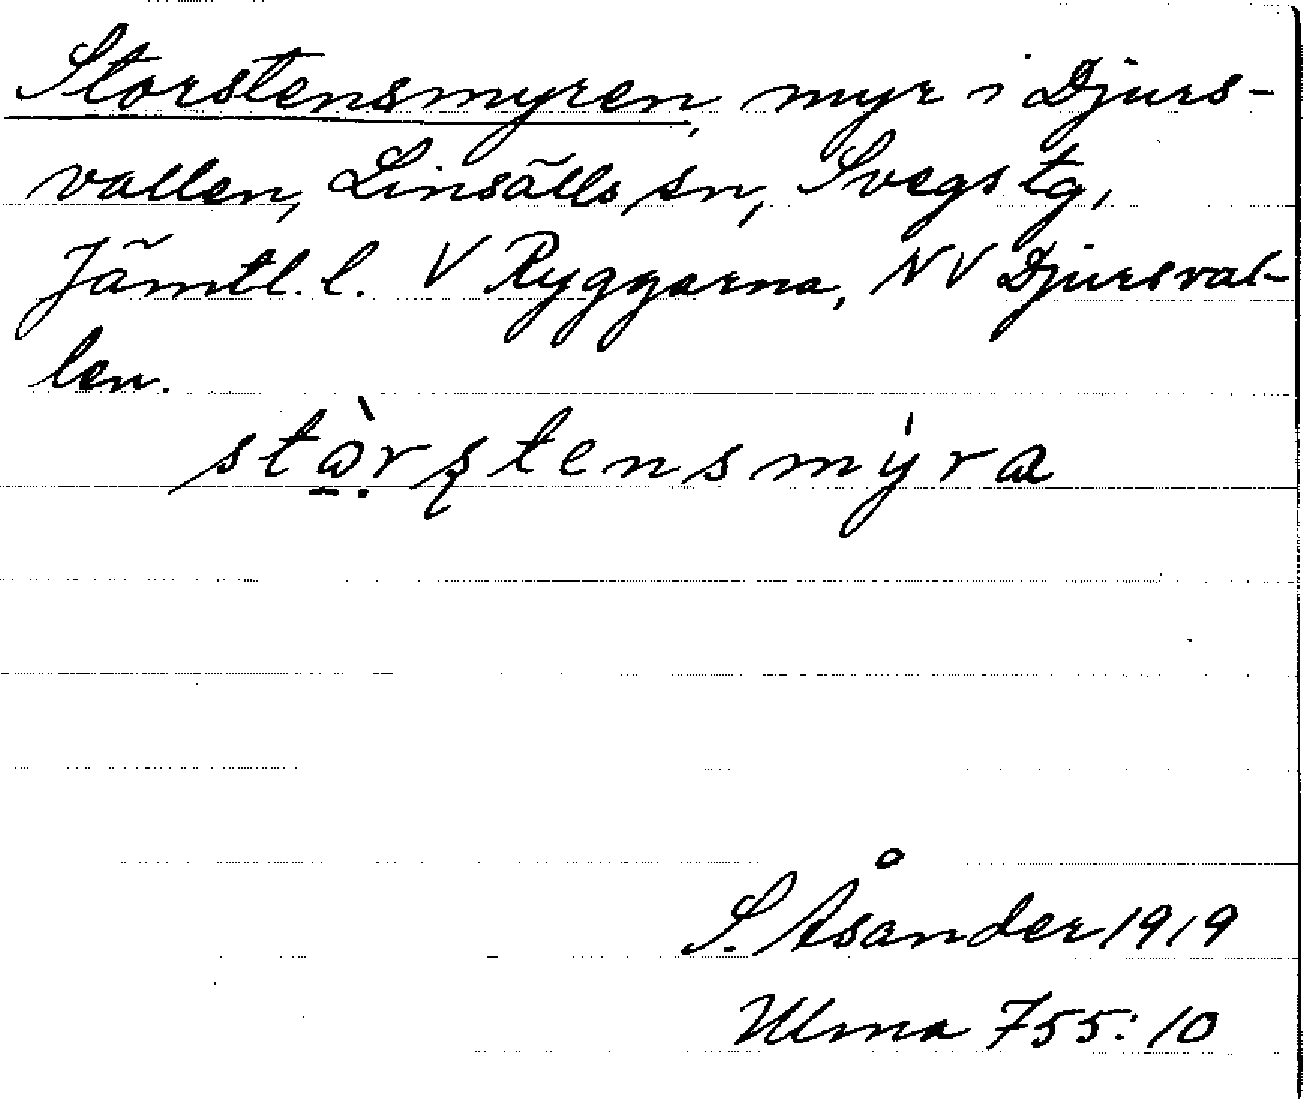 Storstensmyren, myr i Djurs-
vallen, Linsälls sn, Svegs tg,
Jämtl. l. V Ryggarna, NV Djursval-
len.
stɷ̠̣̀rʂtensmýra
S. Åsander 1919
Ulma 755:10